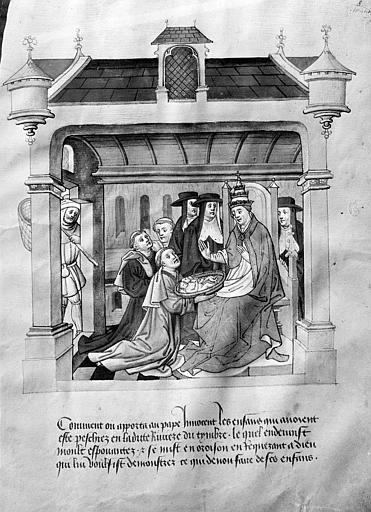 Comment on apporta au pape Innocent les enfans qui avoient
este peschiez en la ditte riviere du tymbre . le quel en devinst
moult espouantez . et se mist en oroison en requerant a dieu
qui lui voulsist demonstrez ce qui devoit faire de ses enfans .